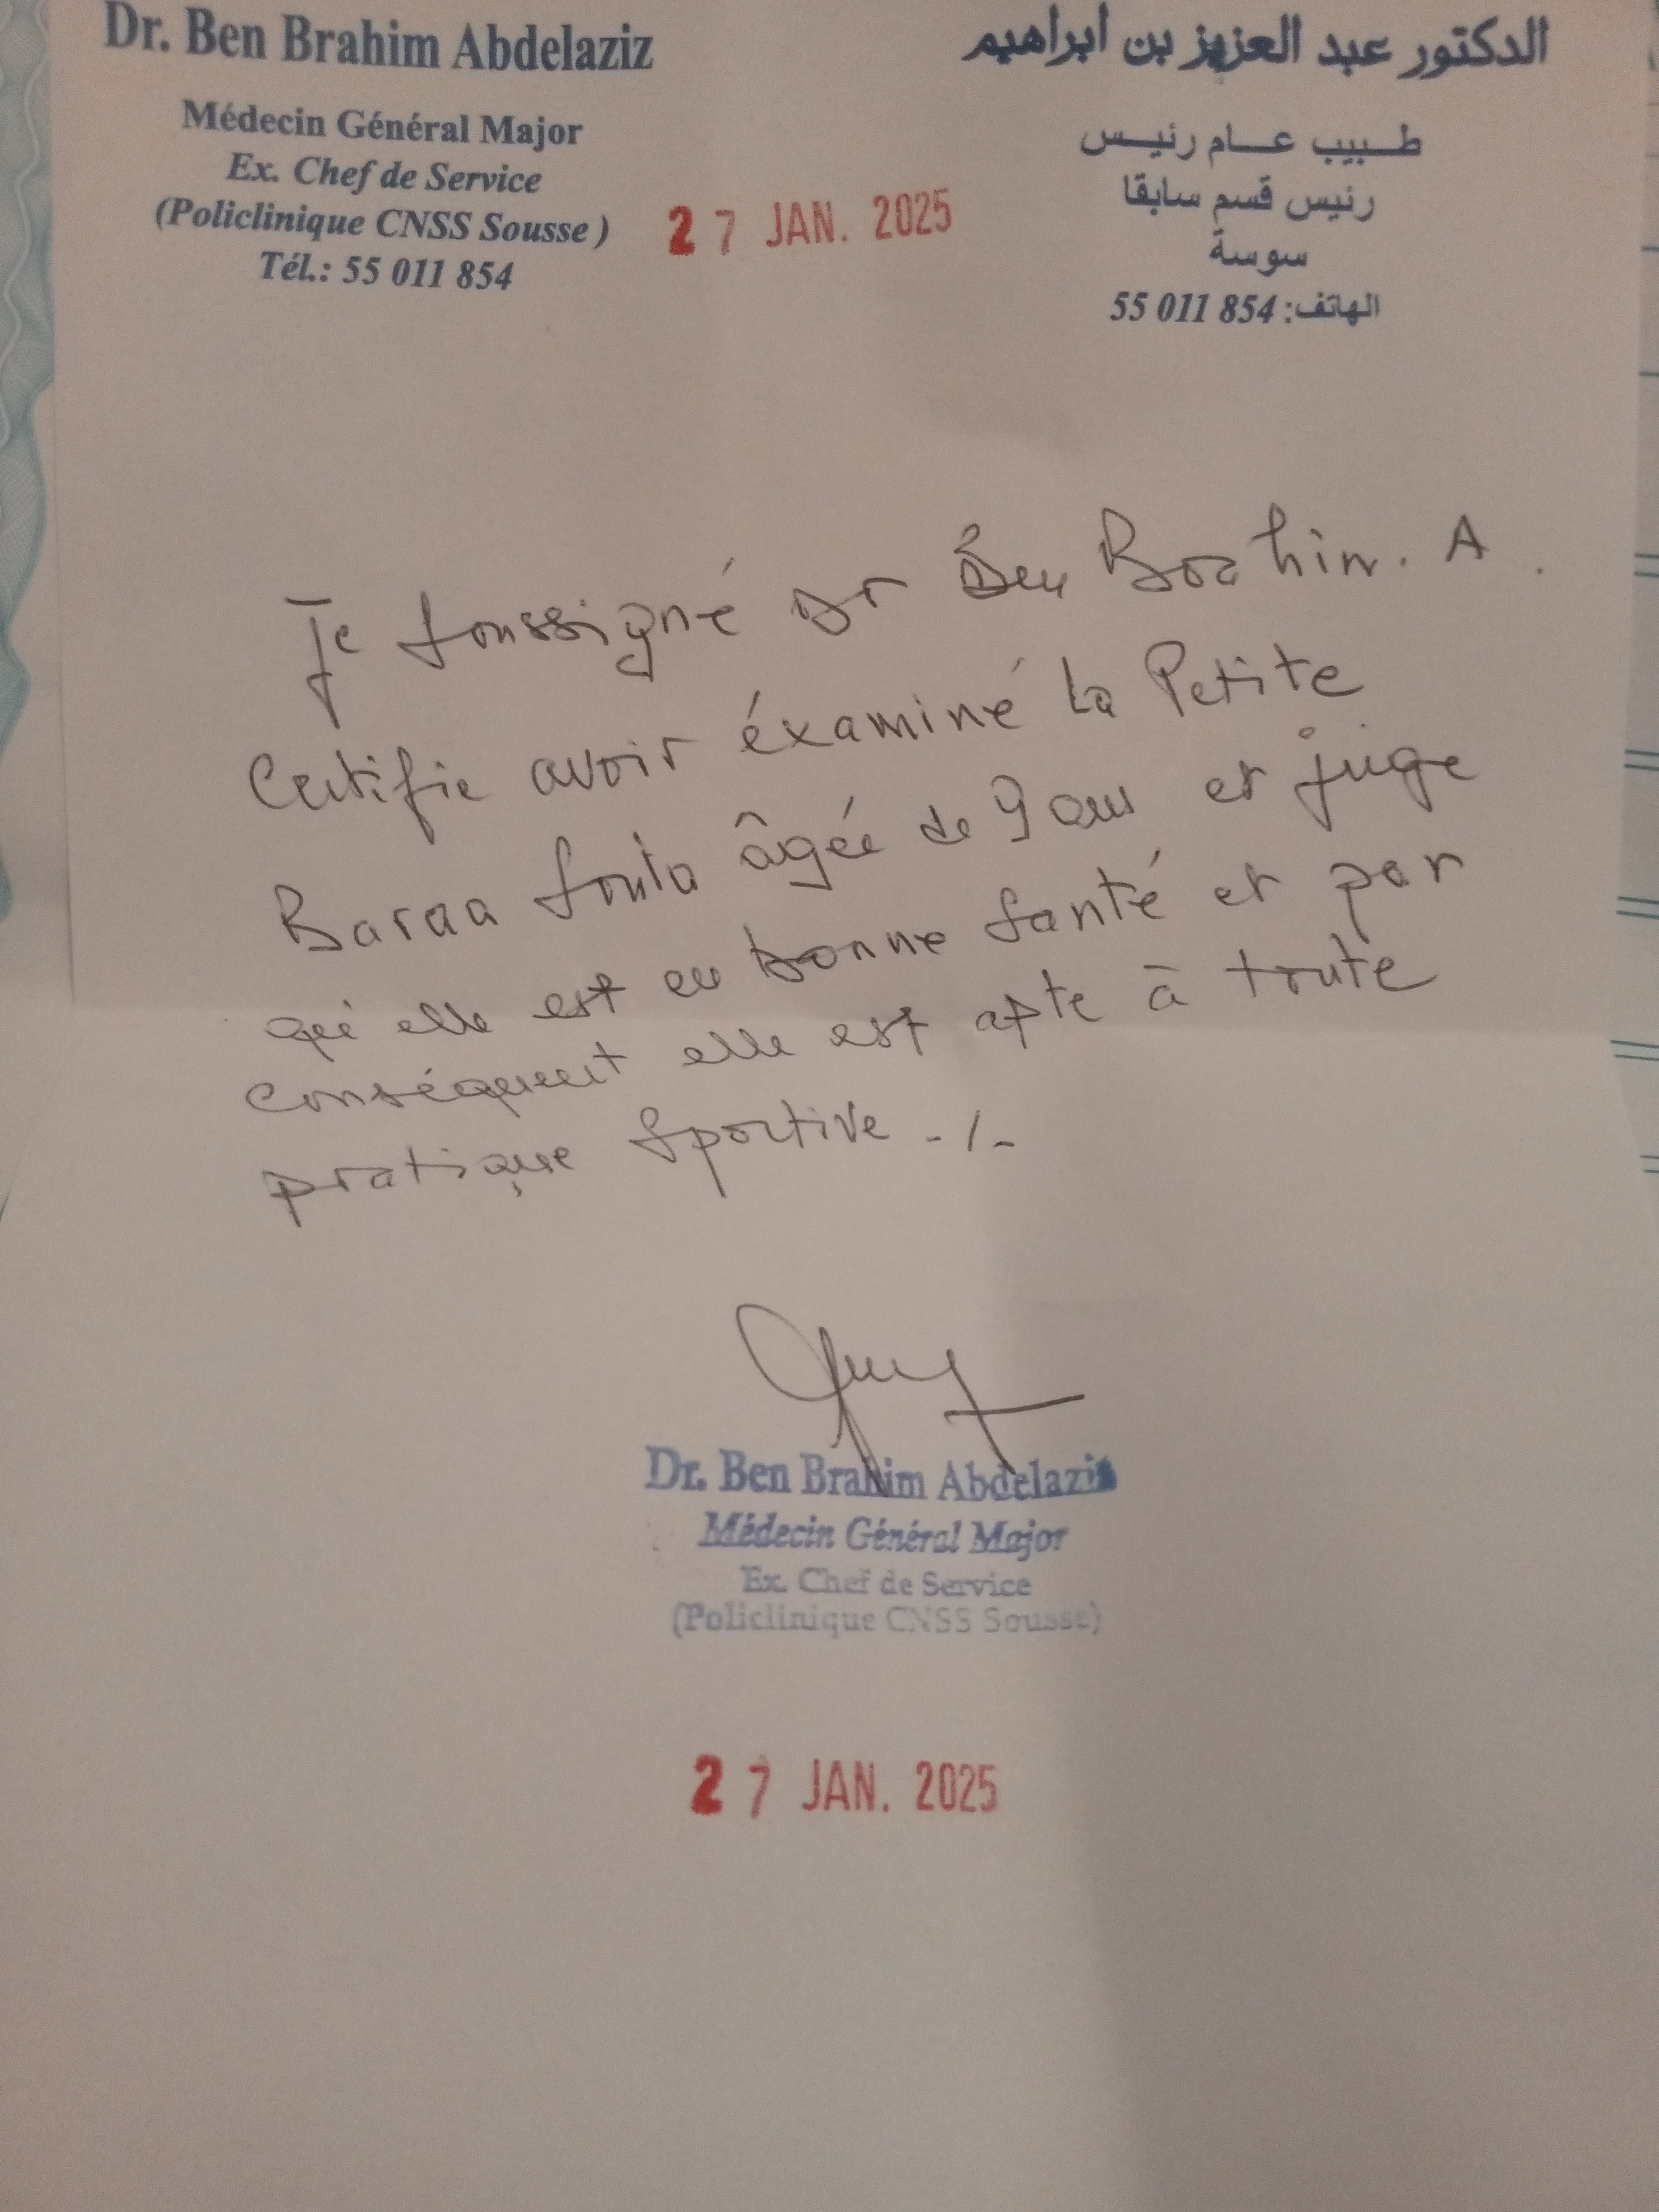 Dr. Ben Brahim Abdelaziz
Médecin Général Major
Ex. Chef de Service
(Policlinique CNSS Sousse )
Tél.: 55 011 854
27 JAN. 2025
الدكتور عبد العزيز بن ابراهيم
طبيب عام رئيس
رئيس قسم سابقا
سوسة
الهاتف: 854 011 55
Je soussigné Dr Ben Brahim. A.
Certifie avoir éxaminé la Petite
Baraa âgée de 9 ans et juge
qui elle est en bonne santé et par
conséquent elle est apte à toute
pratique sportive -/-
Dr. Ben Brahim Abdelaziz
Médecin Général Major
Ex. Chef de Service
(Policlinique CNSS Sousse)
27 JAN. 2025